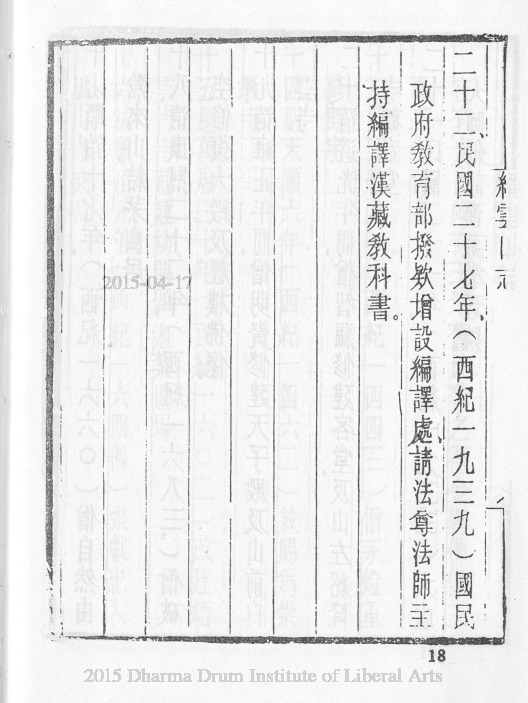 縉雲山志
二十二、民國二十七年、（西紀一九三九）國民
政府教育部撥欵增設編譯處、請法尊法師主
持編譯漢藏教科書。
2015-04-17
18
2015 Dharma Drum Institute of Liberal Arts